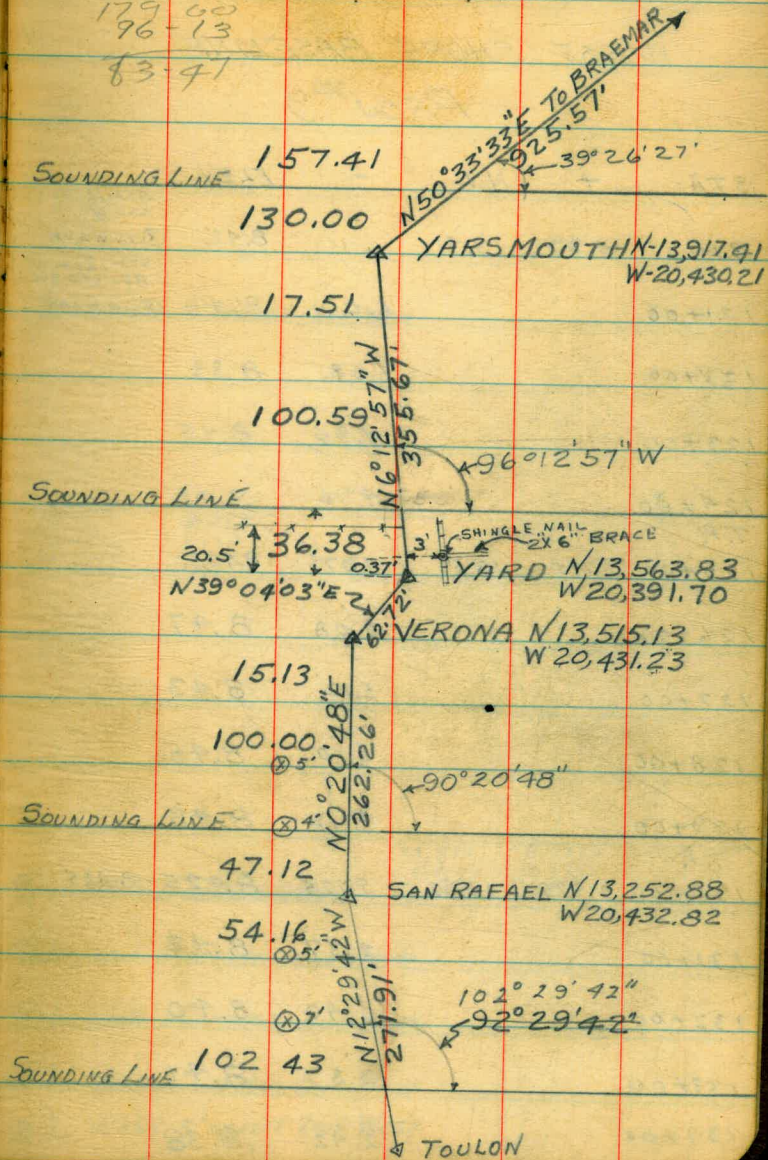 179-60
96-13
83-47
N50°33'33"E TO BRAEMAR
925.57'
39°26'27'
157.41
SOUNDING LINE
130.00
YARSMOUTH N-13,917.41
W-20,430.21
17.51
N6°12'57"W
355.67'
100.59
96°12'57"W
SOUNDING LINE
SHINGLE NAIL
2"X6" BRACE
20.5'
36.38
3'
0.37'
YARD N13,563.83
W20,391.70
N39°04'03"E
62.72'
VERONA N13,515.13
W 20,431.23
15.13
N0°20'48"E
262.26'
100.00
5'
90°20'48"
SOUNDING LINE
4'
47.12
SAN RAFAEL N13,252.88
W20,432.82
54.16
5'
N12°29'42"W
277.91'
102°29'42"
92°29'42"
7'
102 43
SOUNDING LINE
TOULON